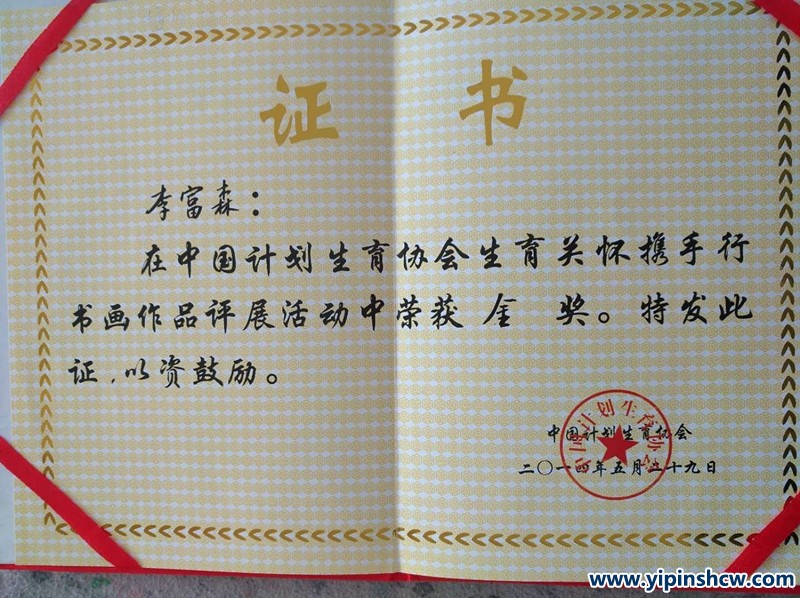 证 书
李富森：
在中国计划生育协会生育关怀携手行
书画作品评展活动中荣获 金 奖。特发此
证，以资鼓励。
中国计划生育协会
中国计划生育协会
二〇一四年五月二十九日
www.yipinshcw.com